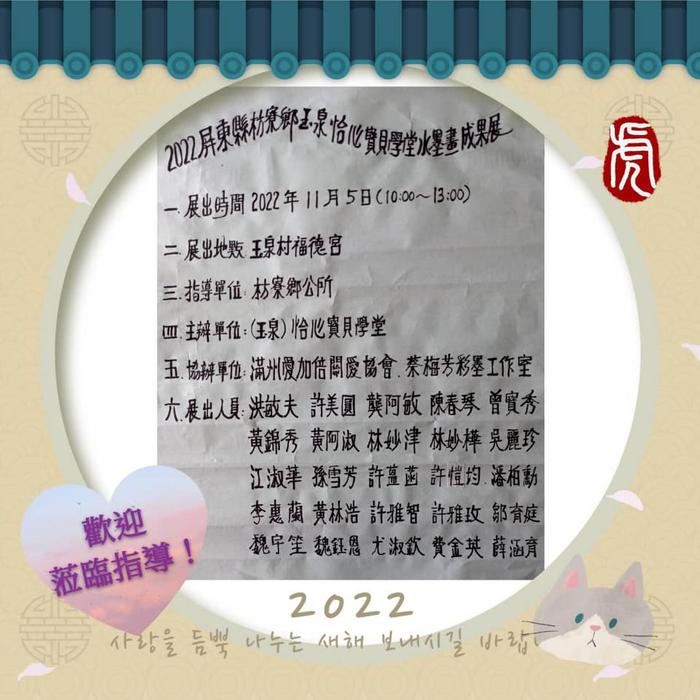 2022屏東縣枋寮鄉玉泉怡心寶貝學堂水墨畫成果展
一.展出時間 2022年11月5日(10:00~13:00)
二.展出地點:玉泉村福德宮
三.指導單位:枋寮鄉公所
四.主辦單位:(玉泉)怡心寶貝學堂
五.協辦單位:滿州愛加倍關愛協會.蔡梅芳彩墨工作室
六.展出人員:洪敏夫 許美圓 龔阿敏 陳春琴 曾寶秀
黃錦秀 黃阿淑 林妙津 林妙樺 吳麗珍
江淑華 孫雪芳 許菡 許愷均 潘柏勳
李惠蘭 黃林浩 許雅智 許雅玫 鄒育庭
魏宇笙 魏鈺恩 尤淑欽 費金英 薛涵育
虎
歡迎
蒞臨指導!
2022
사랑을 듬뿍 나누는 새해 보내시길